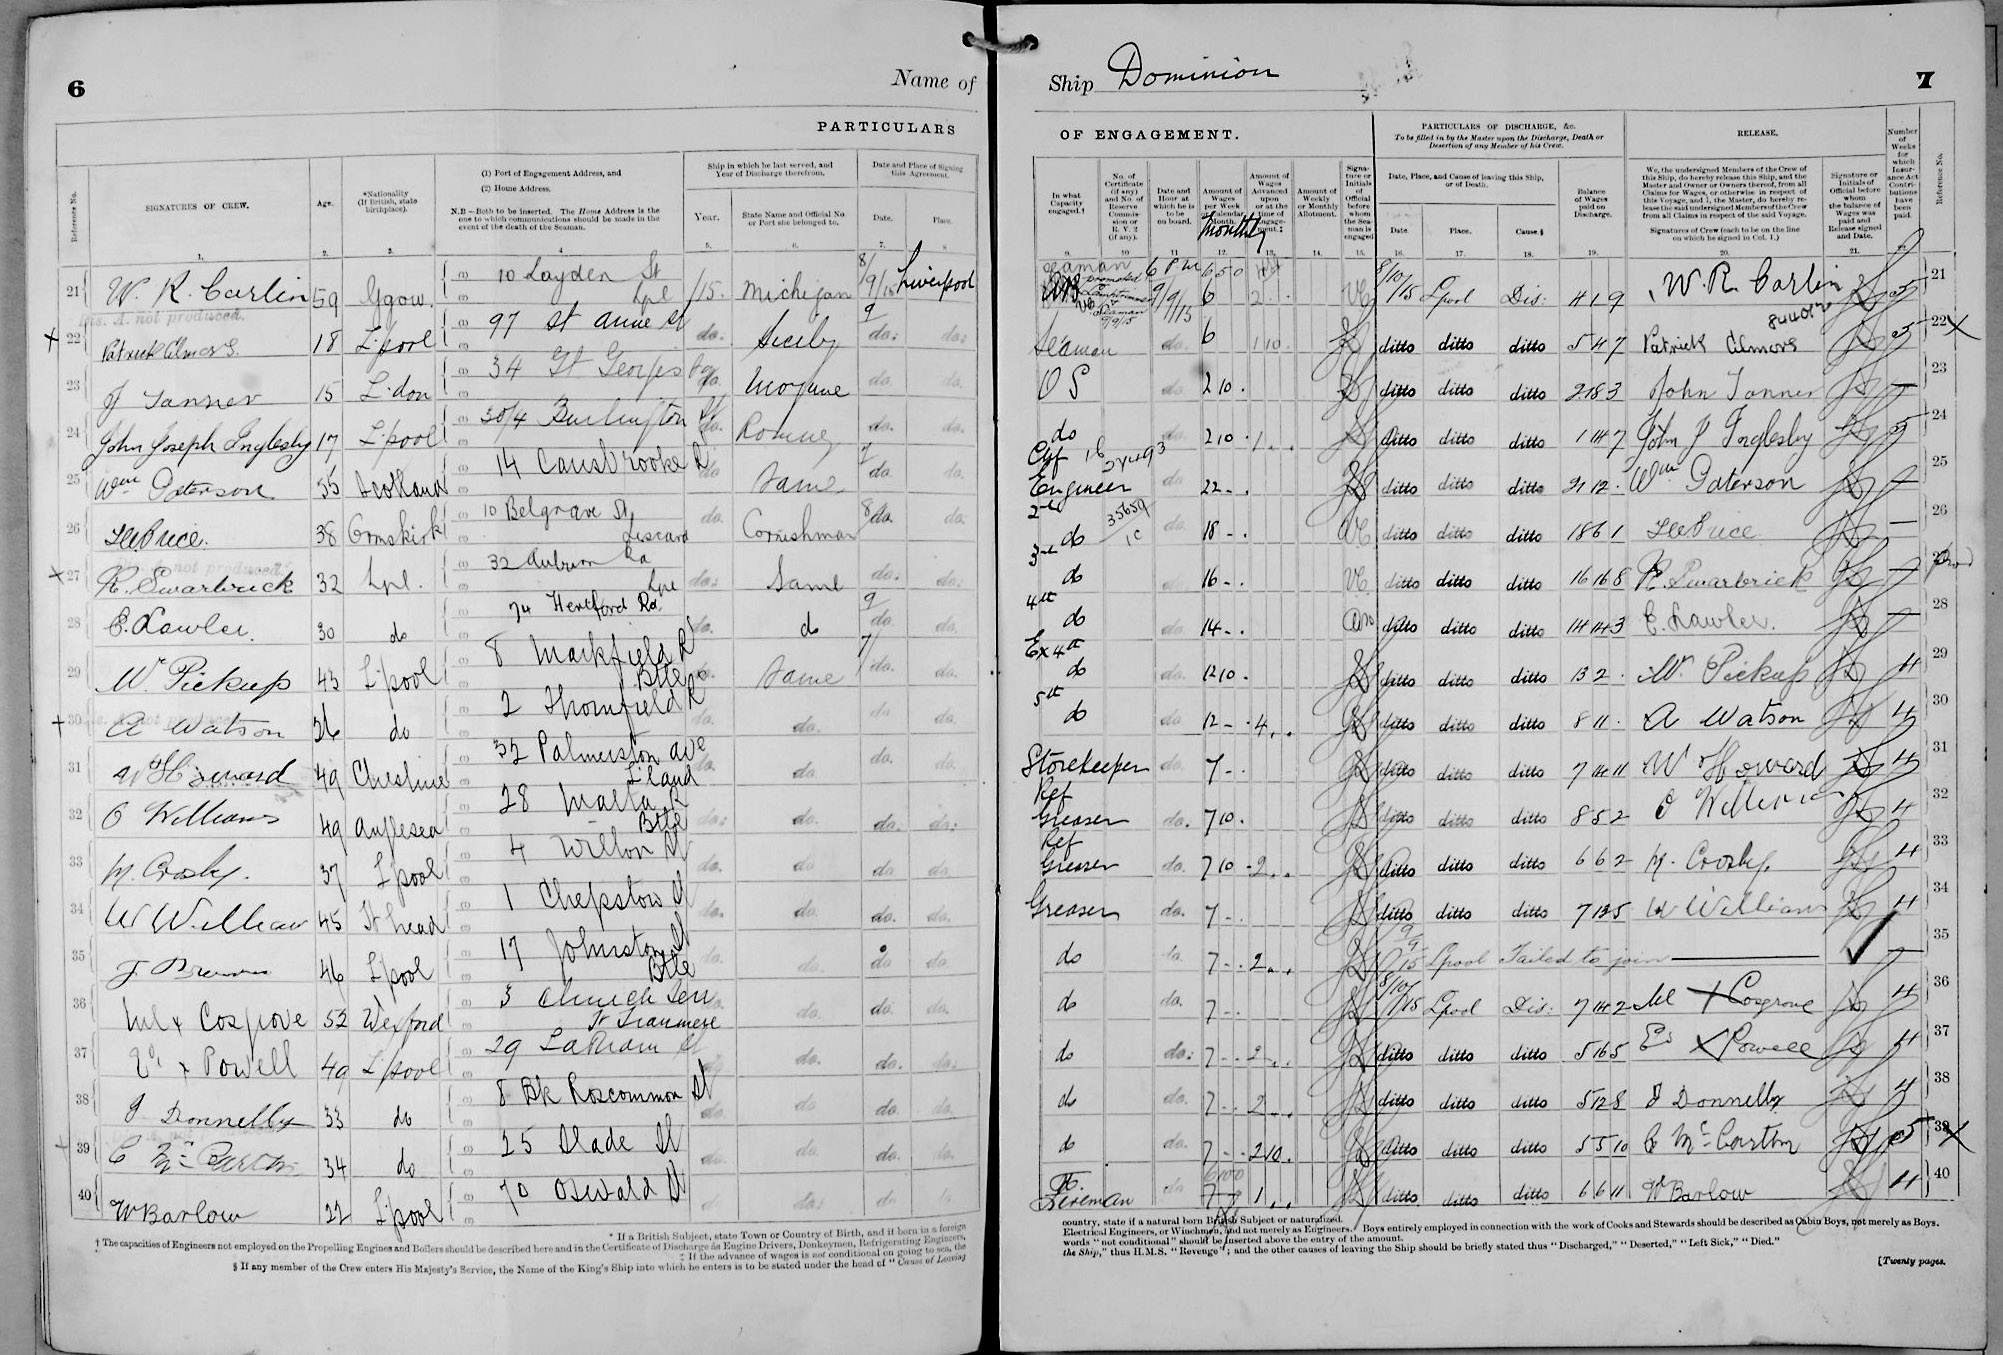 6
Name of
Ship Dominion
7
PARTICULARS
OF ENGAGEMENT.
PARTICULARS OF DISCHARGE, &c.
To be filled in by the Master upon the Discharge, Death or Desertion of any Member of his Crew.
RELEASE.
Reference No.
SIGNATURES OF CREW.
Age.
*Nationality (If British, state birthplace).
(1) Port of Engagement Address, and
(2) Home Address.
N.B—Both to be inserted. The Home Address is the one to which communications should be made in the event of the death of the Seaman.
Ship in which he last served, and Year of Discharge therefrom.
Year.
State Name and Official No. or Port she belonged to.
Date and Place of Signing this Agreement.
Date.
Place.
In what Capacity engaged.†
No. of Certificate (if any) and No. of Reserve Commission or R. V. 2 (if any).
Date and Hour at which he is to be on board.
Amount of Wages per Week Calendar Month.
Monthly
Amount of Wages Advanced upon or at the time of Engagement.‡
Amount of Weekly or Monthly Allotment.
Signature or Initials of Official before whom the Seaman is engaged
Date, Place, and Cause of leaving this Ship, or of Death.
Date.
Place.
Cause.§
Balance of Wages paid on Discharge.
We, the undersigned Members of the Crew of this Ship, do hereby release this Ship, and the Master and Owner or Owners thereof, from all Claims for Wages, or otherwise in respect of this Voyage, and I, the Master, do hereby release the said undersigned Members of the Crew from all Claims in respect of the said Voyage.
Signatures of Crew (each to be on the line on which he signed in Col. 1.)
Signature or Initials of Official before whom the balance of Wages was paid and Release signed and Date.
Number of Weeks for which Insurance Act Contributions have been paid.
Reference No.
21 W. R. Carlin 59 Ggow. 10 Layden St Lpl /15. Michigan 9/15 Liverpool 6 8/10/15 Lpool Dis: 4 1 9 W. R. Carlin 21
Dis. A. not produced.
22 Patrick Elmors 18 L'pool 97 St Anne St do: Sicily do: do: Seaman do. 6 1 10 ditto ditto ditto 5 4 7 Patrick Elmors 5 22 X
23 J Tanner 15 L'don 34 St Georges do. do. do. O S do. 2 10 . ditto ditto ditto 2 18 3 John Tanner 23
24 John Joseph Inglesby 17 L'pool 30/4 Burlington St do. Romney do. do. do do. 2 10 . 1 . . ditto ditto ditto 1 14 7 John J Inglesby 5 24
25 Wm Paterson 55 Scotland 14 Carisbrooke Rd do Same do. do. Chf Engineer do 22 - . ditto ditto ditto 21 12 . Wm Paterson 25
26 38 Ormskirk 10 Belgrave St. Liscard do. Cornishman do. do. 2nd do 35659 do. 18 - . ditto ditto ditto 18 6 1 — 26
27 R. Swarbrick 32 Lpl. 32 Auburn Rd Lpl do: Same do: do: 3rd do 16 - . ditto ditto ditto 16 16 8 R. Swarbrick 27
28 E. Lawler. 30 do 74 Hertford Rd. do. do do. do. 4th do do. 14 - . ditto ditto ditto 14 14 3 E. Lawler. 28
29 W. Pickup 43 L'pool 8 Markfield Rd Btle do. Same do. do. Ex 4th do do. 12 10 . ditto ditto ditto 13 2 . W. Pickup 4 29
30 A Watson 26 do 2 Thornfield Rd do. do. do do. 5th do do. 12 - . 4 . . ditto ditto ditto 8 11 . A Watson 4 30
31 W Howard 49 Cheshire 32 Palmerston ave L'land do. do. do. do. Storekeeper do. 7 - . ditto ditto ditto 7 14 11 W Howard 4 31
32 O Williams 49 Anglesea 28 Malta Rd Btle do: do. do. do: Ref Greaser do. 7 10 . ditto ditto ditto 8 5 2 O Williams 4 32
33 M. Crosby. 37 L'pool 4 Wilton St do. do. do. do. Ref Greaser do. 7 10 . 2 . . ditto ditto ditto 6 6 2 M. Crosby. 4 33
34 W William 45 St head 1 Chepstow St do. do. do. do. Greaser do. 7 - . ditto ditto ditto 7 13 5 W Williams 4 34
35 46 L'pool 17 Johnston St Btle do. do. do do. do do. 7 - . 2 . . 9/9/15 Lpool Failed to join — ✓ — 35
36 Ml x Cosgrove 52 Wexford 3 Church Terr Tr Tranmere do. do: do. do do. 7 - . 8/10/15 Lpool Dis: 7 14 2 Ml X Cosgrove 4 36
37 Ed x Powell 49 L'pool 29 Latham St do. do. do. do do: 7 - . 2 . . ditto ditto ditto 5 16 5 Ed X Powell 4 37
38 J Donnelly 33 do 8 Bk Roscommon St do. do. do. do. do do. 7 - . 2 . . ditto ditto ditto 5 12 8 J Donnelly 4 38
39 C McCartin 34 do 25 Slade St do. do. do. do. do do. 7 - . 2 10 . ditto ditto ditto 5 5 10 C McCartin 5 39 X
40 W Barlow 22 L'pool 70 Oswald St do do: do do Fireman do. 7 1 . . ditto ditto ditto 6 6 11 W Barlow 4 40
* If a British Subject, state Town or Country of Birth, and if born in a foreign country, state if a natural born British Subject or naturalized.
† The capacities of Engineers not employed on the Propelling Engines and Boilers should be described here and in the Certificate of Discharge as Engine Drivers, Donkeymen, Refrigerating Engineers, Electrical Engineers, or Winchmen, and not merely as Engineers. Boys entirely employed in connection with the work of Cooks and Stewards should be described as Cabin Boys, not merely as Boys.
‡ If the advance of wages is not conditional on going to sea, the words "not conditional" should be inserted above the entry of the amount.
§ If any member of the Crew enters His Majesty's Service, the Name of the King's Ship into which he enters is to be stated under the head of "Cause of Leaving the Ship," thus H.M.S. "Revenge"; and the other causes of leaving the Ship should be briefly stated thus "Discharged," "Deserted," "Left Sick," "Died."
[Twenty pages.